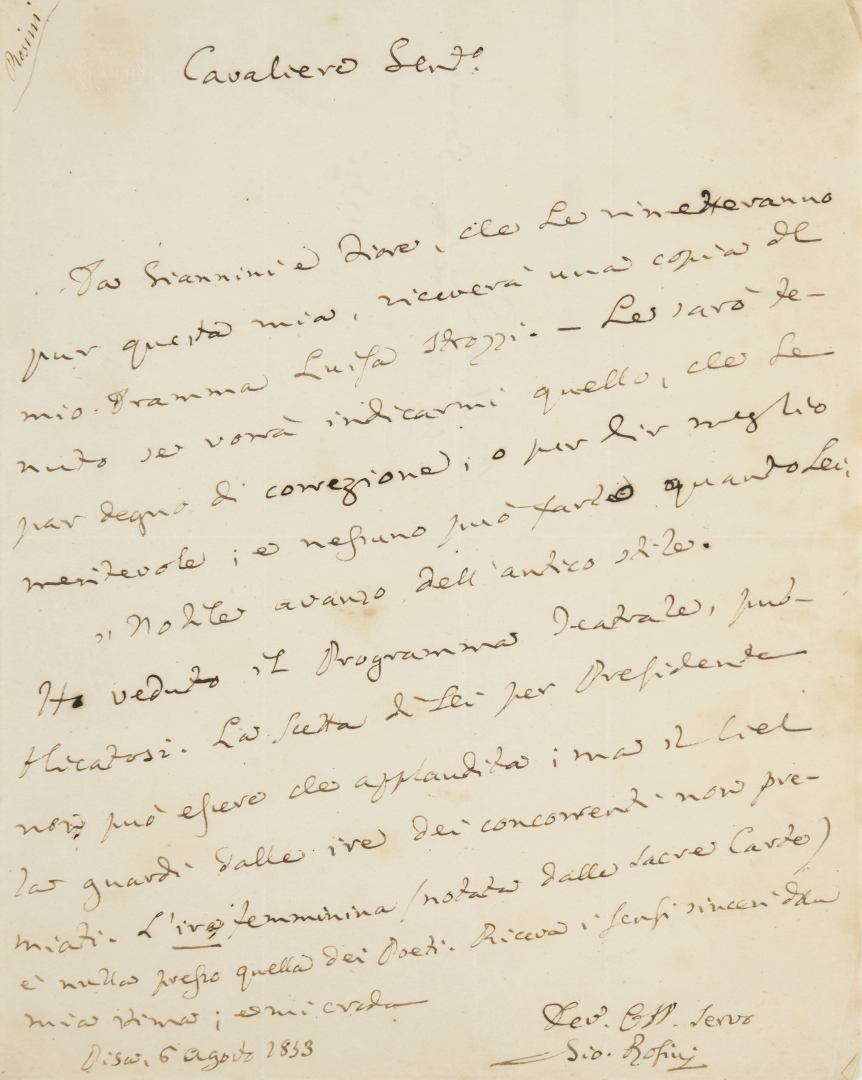 Rosini
Cavaliere Gent.o
Da Giannini e Fiore, che Le rimetteranno
pur questa mia, riceverà una copia del
mio Dramma Luisa Strozzi. — Le sarò te-
nuto se vorrà indicarmi quello, che Le
par degno di correzione, o per dir meglio
meritevole; e nessuno può farlo quanto Lei,
" Nobile avanzo dell'antico stile.
Ho veduto il Programma Teatrale, pub-
blicatosi. La Scelta di Lei per Presidente
non può essere che applaudita; ma il Ciel
la guardi dalle ire dei concorrenti non pre-
miati. L'ira femminina (notata dalle sacre Carte)
è nulla presso quella dei Poeti. Riceva i sensi sinceri della
mia stima; e mi creda
Dev. Obb. Servo
Gio. Rosini
Pisa, 6 Agosto 1833